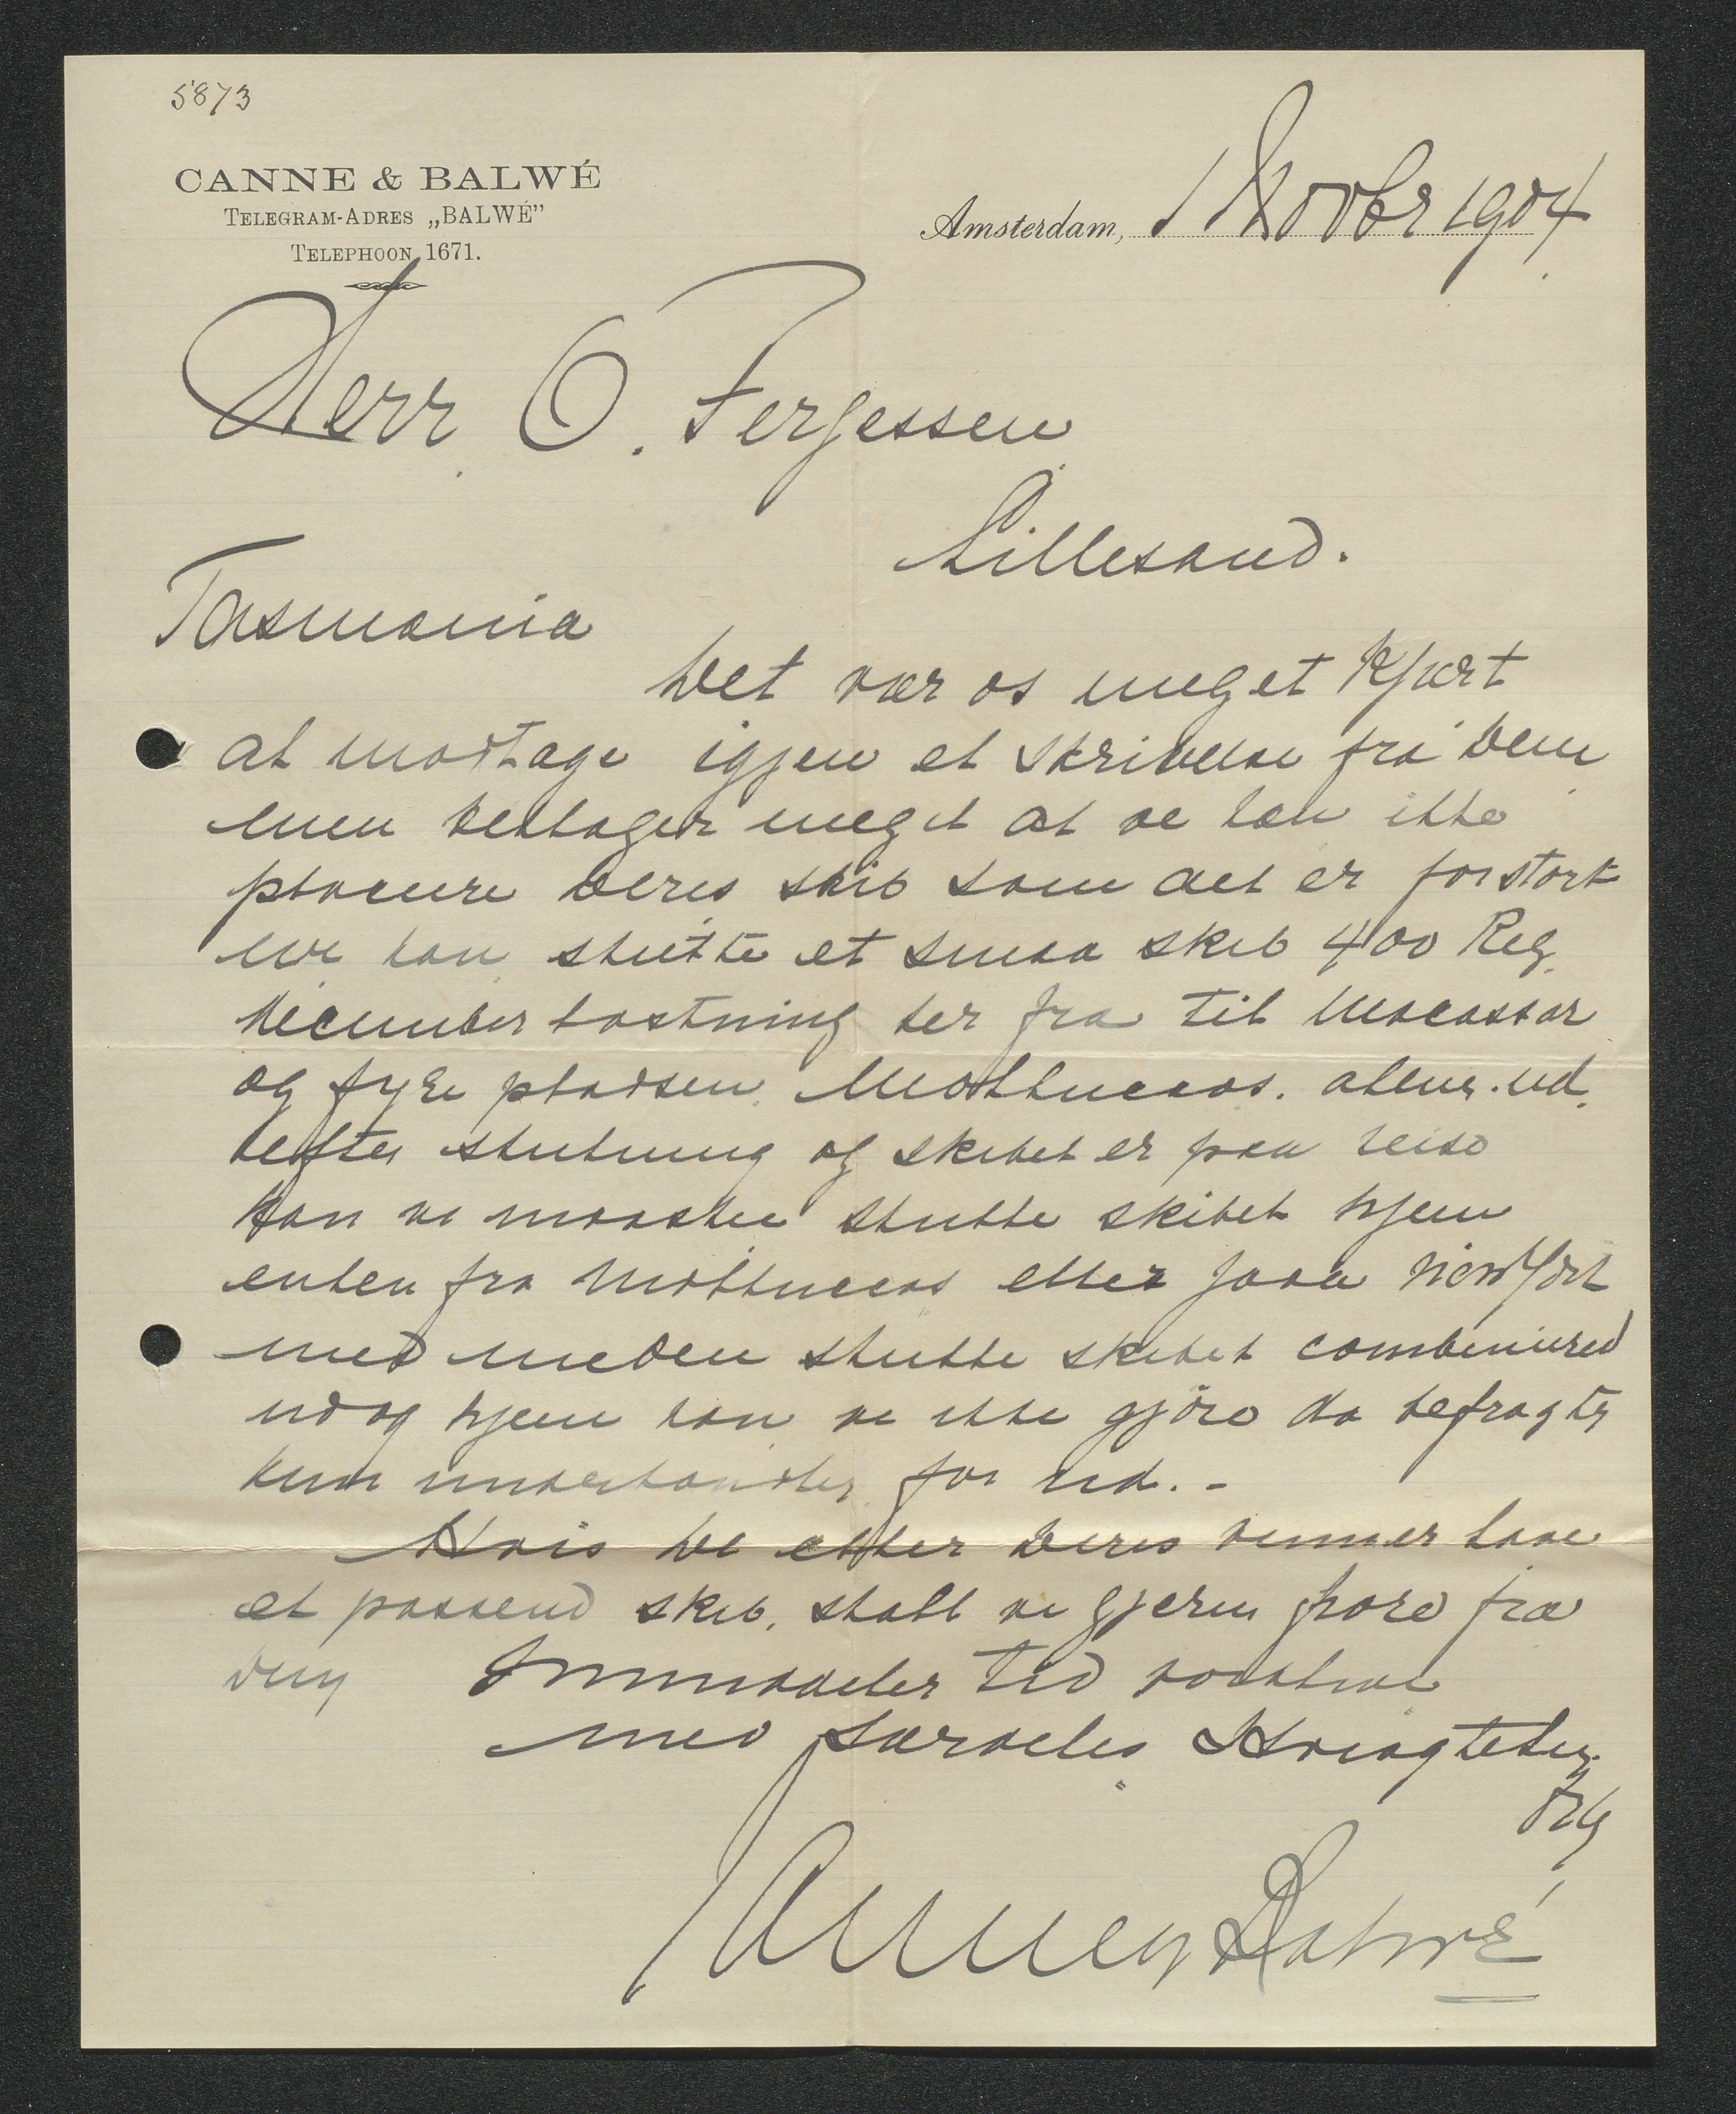 5873
CANNE & BALWÉ
TELEGRAM-ADRES „BALWÉ”
TELEPHOON 1671.
Amsterdam, 1 Novbr 1904
Herr O. Terjessen
Lillesand.
Tasmania
Det var os meget Kjært
at modtage igjen et skrivelse fra Dem
men beklager meget at ve kan ikke
placere Deres skib som det er for stort
we kan slutte et smaa skib 400 Reg.
december lastning her fra til Macassar
og fyre pladsen Molluccas. allene. ud.
befter slutning og skibet er paa reise
Kan ve maaskee slutte skibet hjem
enten fra Molluccas eller Java New York
med meden slutte skibet combineered
ud og hjem kan ve ikke gjöre da befragter
kun underhandler for ud. -
Hvis De eller Deres venner have
et passend skib, skall ve gjerne höre fra
Dem Immidler tid
med særdeles Hoiagtelse
Canne & Balwé